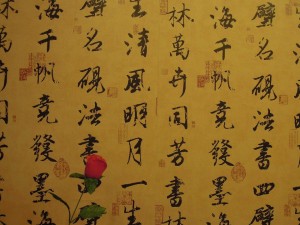 壁名硯法書四壁
海千帆競發墨海
林萬卉同芳書林
生清風明月一生
壁名硯法書
海千帆競發墨海
林萬卉同芳書林